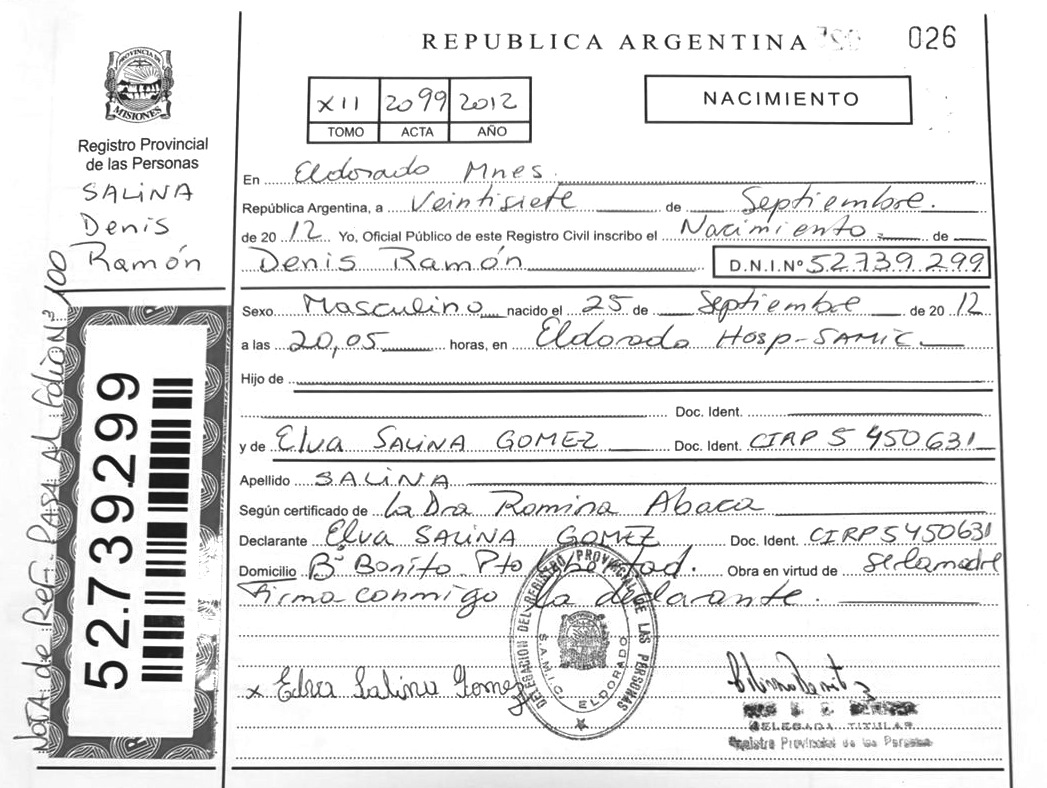 REPUBLICA ARGENTINA
026
PROVINCIA DE
MISIONES
Registro Provincial
de las Personas
SALINA
Denis
Ramón
XII 2099 2012
TOMO ACTA AÑO
NACIMIENTO
En Eldorado Mnes.
República Argentina, a Veintisiete de Septiembre.
de 2012 Yo, Oficial Público de este Registro Civil inscribo el Nacimiento de
Denis Ramón D.N.I.Nº 52.739.299
Sexo Masculino nacido el 25 de Septiembre de 2012
a las 20,05 horas, en Eldorado Hosp-SAMIC
Hijo de
Doc. Ident.
y de Elva SALINA GOMEZ Doc. Ident. CIRP 5 450631
Apellido SALINA
Según certificado de La Dra Romina Abaca
Declarante Elva SALINA GOMEZ Doc. Ident. CIRP 5 450631
Domicilio Bº Bonito Pto Libertad. Obra en virtud de ser la madre
Firma conmigo la declarante.
x Elva Salina Gomez
DELEGACION DEL REGISTRO PROVINCIAL DE LAS PERSONAS
S.A.M.I.C. ELDORADO
DELEGADA TITULAR
Registro Provincial de las Personas
NOTA de REF. PASA AL FoliONº 100
52.739.299